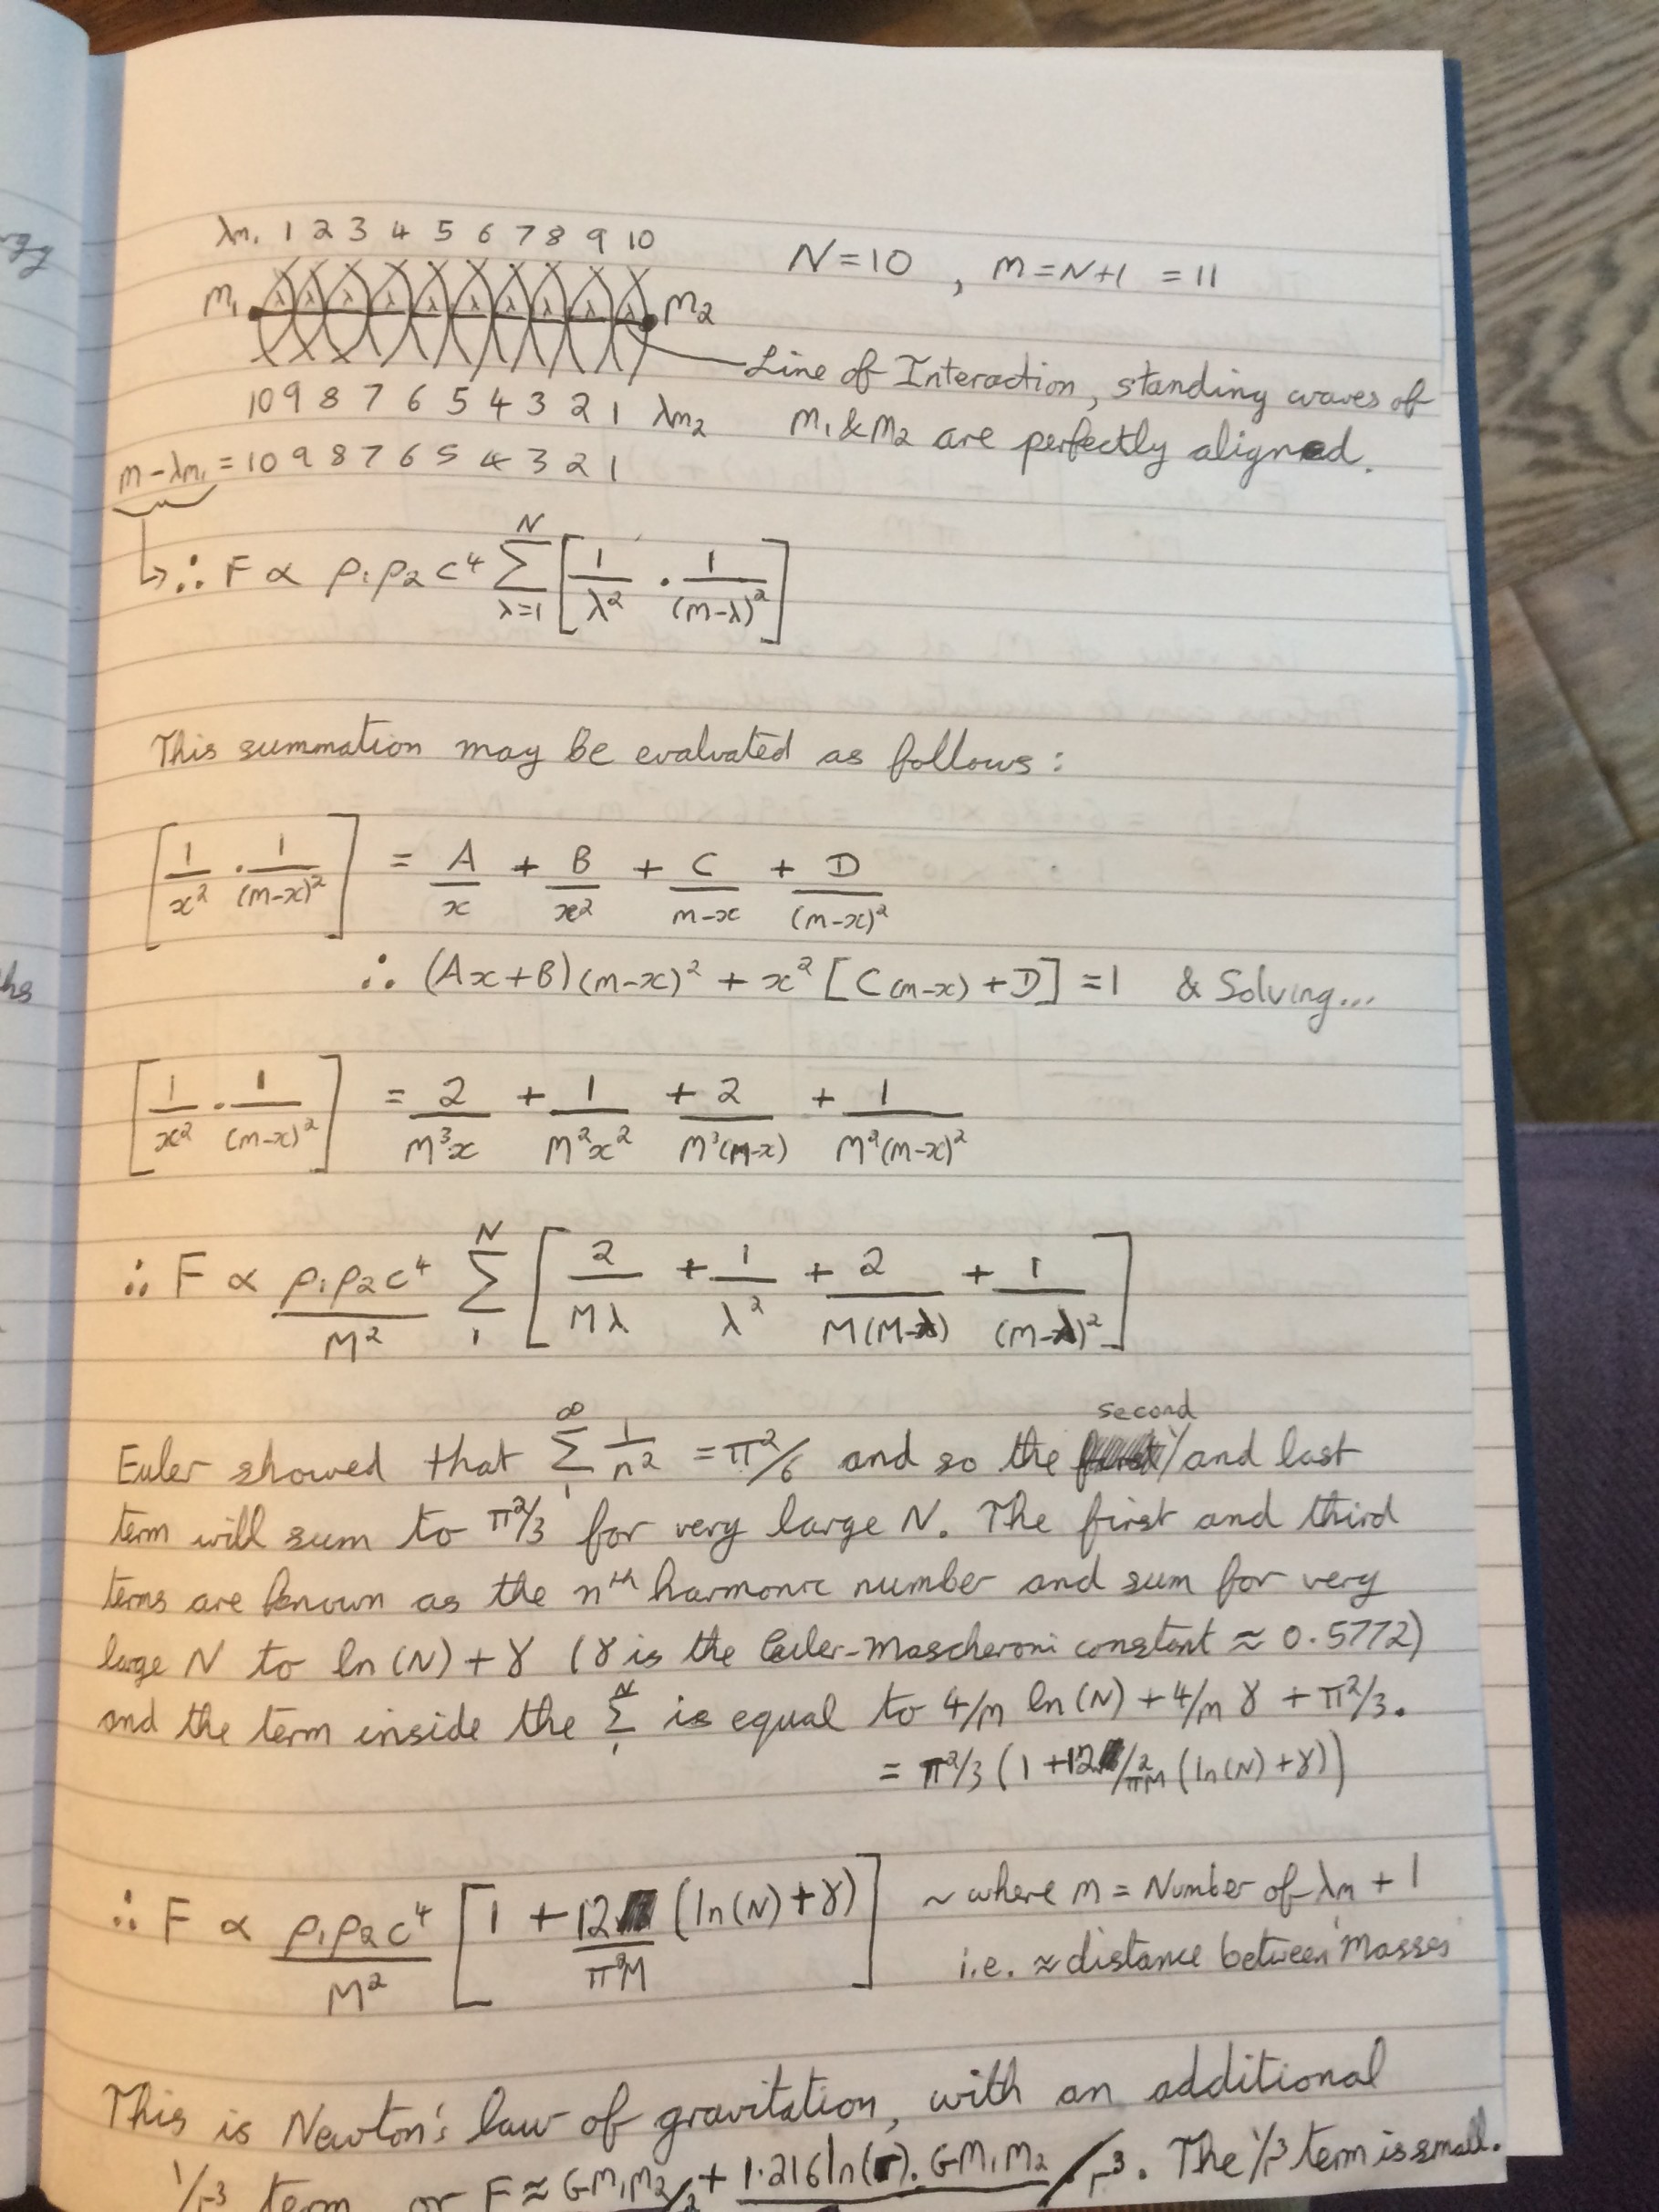 rgy
λm₁ 1 2 3 4 5 6 7 8 9 10
N=10 , m=N+1 =11
m₁ λ λ λ λ λ λ λ λ λ λ m₂
Line of Interaction, standing waves of
10 9 8 7 6 5 4 3 2 1 λm₂ m₁&m₂ are perfectly aligned.
m-λm₁ = 10 9 8 7 6 5 4 3 2 1
∴ F ∝ ρ₁ρ₂c⁴ ∑_{λ=1}^{N} [1/λ² · 1/(m-λ)²]
This summation may be evaluated as follows:
[1/x² · 1/(m-x)²] = A/x + B/x² + C/(m-x) + D/(m-x)²
∴ (Ax+B)(m-x)² + x²[C(m-x)+D] =1 & Solving...
[1/x² · 1/(m-x)²] = 2/(M³x) + 1/(M²x²) + 2/(M³(M-x)) + 1/(M²(m-x)²)
∴ F ∝ ρ₁ρ₂c⁴/M² ∑_{1}^{N} [2/(Mλ) + 1/λ² + 2/(M(M-λ)) + 1/(m-λ)²]
second
Euler showed that ∑_{1}^{∞} 1/n² = π²/6 and so the and last
term will sum to π²/3 for very large N. The first and third
terms are known as the nᵗʰ harmonic number and sum for very
large N to ln(N)+γ (γ is the Euler-Mascheroni constant ≈ 0.5772)
and the term inside the ∑_{1}^{N} is equal to 4/m ln(N) + 4/m γ + π²/3.
= π²/3 (1 + 12/π²M (ln(N)+γ))
∴ F ∝ ρ₁ρ₂c⁴/M² [1 + 12/(π²M) (ln(N)+γ)] ~ where m = Number of λm + 1
i.e. ≈ distance between masses
This is Newton's law of gravitation, with an additional
1/r³ term or F ≈ GM₁M₂/r² + 1.216ln(r). GM₁M₂/r³. The 1/r³ term is small.